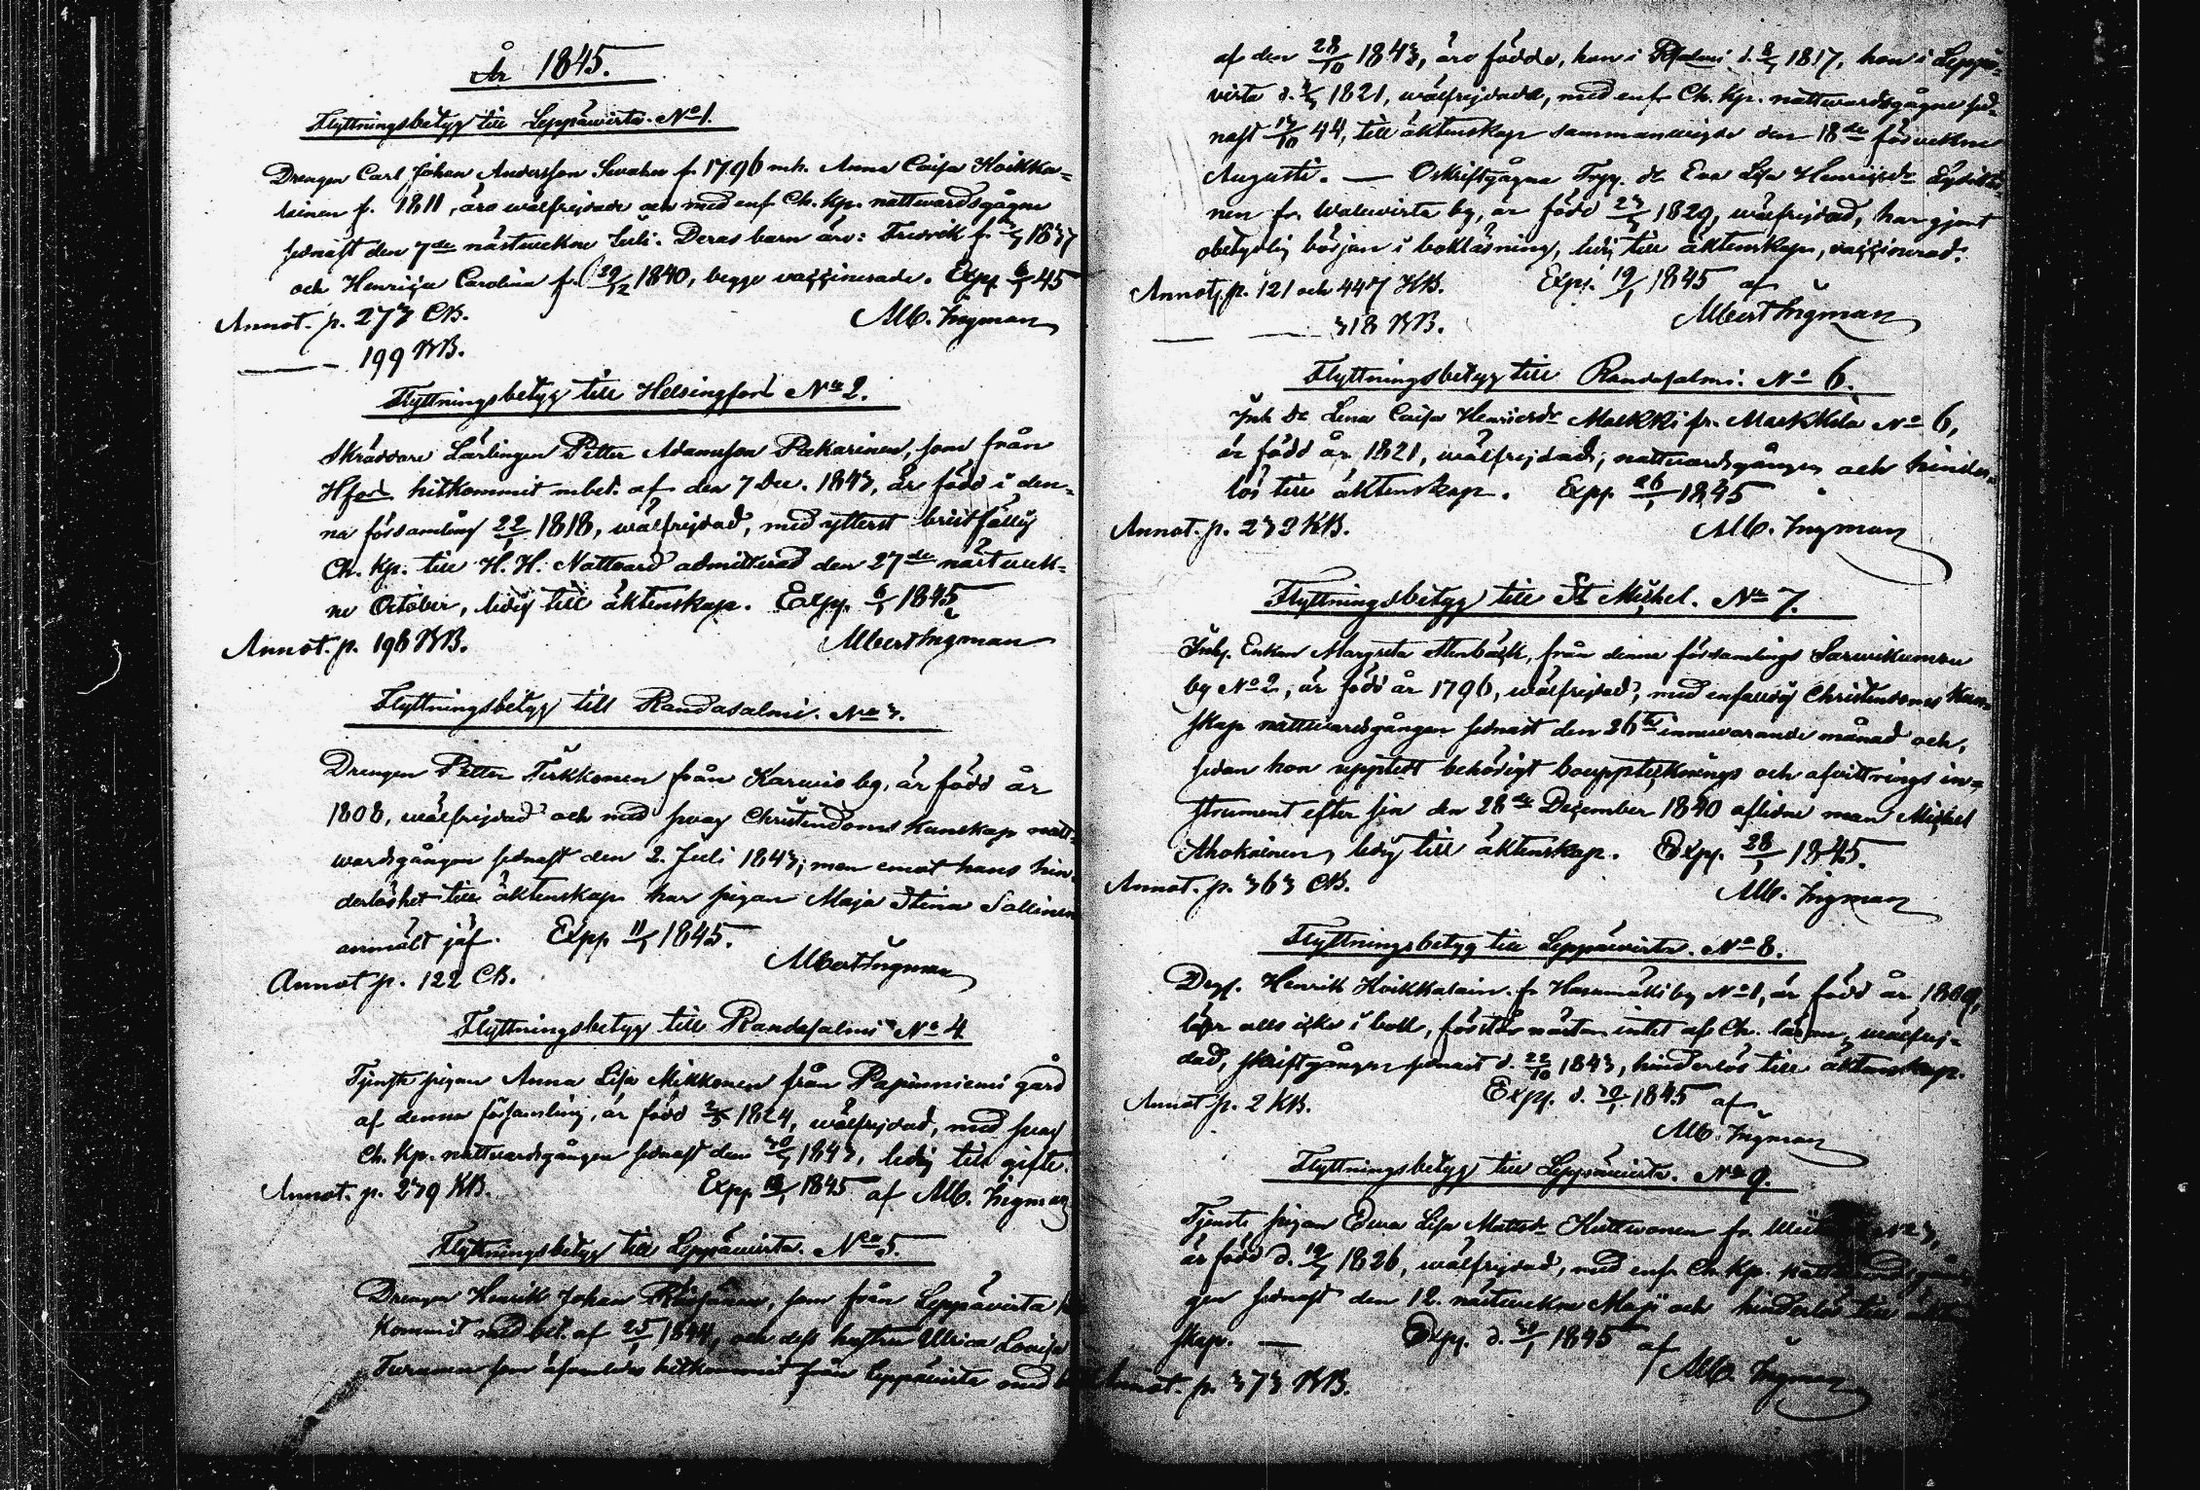 År 1845.
Flyttningsbetyg till Leppäwirta. No 1.
Drengen Carl Johan Andersson f. 1796 m.h. Anna Caisa Koikka=
lainen f. 1811, äro wälfrejdade och med enf. Ch. Kp. nattwardsgågne
sednast den 7de nästwekne Juli. Deras barn äro: Fredrik f. 1837
och Henrica Carolina f. 29/12 1840, begge vaccinerade. Exp. 6/1 45
Annot. p. 273 CB. Alb. Ingman
— 199 BB.
Flyttningsbetyg till Helsingfors No 2.
Skräddare Lärlingen Petter Adamsson Pakarinen, som från
Hfors hitkommit m. bet. af den 7 Dec. 1843, är född i den=
na församling 22/1 1818, wälfrejdad, med ytterst bristfällig
Ch. Kp. till H. H. Nattvard admitterad den 27de nästwek=
ne October, ledig till äktenskap. Exp. 6/1 1845
Annot. p. 196 BB. Albert Ingman
Flyttningsbetyg till Randasalmi. No 3.
Drengen Petter Tirkkonen från Karwio by, är född år
1808, wälfrejdad och med swag Christendoms Kunskap natt=
wardsgången sednast den 2. Juli 1843; men emot hans hin=
derlöshet till äktenskap har pigan Maja Stina Sallinen
anmält jäf. Exp. 11/1 1845.
Albert Ingman
Annot p. 122 CB.
Flyttningsbetyg till Randasalmi No 4
Tjenste pigan Anna Lisa Mikkonen från Papinniemi gård
af denna församling, är född 1824, wälfrejdad, med swag
Ch. Kp. nattwardsgången sednast den 1843, ledig till gifte.
Annot. p. 239 KB. Exp. 1845 af Alb. Ingman
Flyttningsbetyg till Leppäwirta. No 5.
Drengen Henrik Johan som från Leppäwirta
kommit med bet. af 25/1 1844, och dess hustru Ulrica Lovisa
som äfwenledes hitkommit från Leppäwirta med
af den 28/10 1843, äro födde, han i d. 1817, hon i Leppä=
wirta d. 1821, wälfrejdade, med enf. Ch. Kp. nattwardsgågne sed=
nast 44, till äktenskap sammanwigde den 18de förwekne
Augusti. — Oskriftgågna Eva Lisa Henricsdr
nen fr. Walwirta by, är född 1829, wälfrejdad, har gjort
obetydlig början i bokläsning, ledig till äktenskap, vaccinerad.
Annot. p. 121 och 447 KB. Exp. 19/1 1845 af
— 318 BB. Albert Ingman
Flyttningsbetyg till Randasalmi. No 6.
Inh. dr Lena Caisa Henricsdr Markki fr. No 6,
är född år 1821, wälfrejdad, nattwardsgången och hinder=
lös till äktenskap. Exp. 26/1 1845
Annot. p. 232 KB. Alb. Ingman
Flyttningsbetyg till St Michel. No 7.
Inh. Enkan Margreta Stenbäck, från denna församlings Sarwikumpu
by No 2, är född år 1796, wälfrejdad, med enfaldig Christendoms Kun=
skap nattwardsgången sednast den 26te innewarande månad och,
sedan hon upptett behörigt bouppteknings och afvittrings in=
strument efter sin den 28de December 1840 aflidne man Michel
Ahokainen, ledig till äktenskap. Exp. 28/1 1845.
Annot. p. 363 CB. Alb. Ingman
Flyttningsbetyg till Leppäwirta. No 8.
Henrik Koikkalain. fr Hasumäki by No 1, är född år 1809,
läser alls icke i bok, förstår nästan intet af Ch. läran, wälfrej=
dad, skriftgången sednast d. 22/10 1843, hinderlös till äktenskap.
Exp. d. 30/1 1845 af
Annot p. 2 KB. Alb. Ingman
Flyttningsbetyg till Leppäwirta. No 9.
Tjenste pigan Ewa Lisa Matsdr Kuttwonen fr.
är född d. 1826, wälfrejdad, med enf. Ch. Kp.
gen sednast den 12. nästwekne Maji och hinderlös till
skap. — Exp. d. 30/1 1845 af
Alb. Ingman
Annot. p. 373 BB.